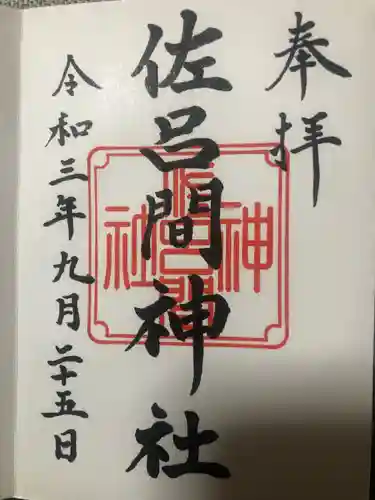 奉拝
佐呂間神社
令和三年九月二十五日
神佐呂間社